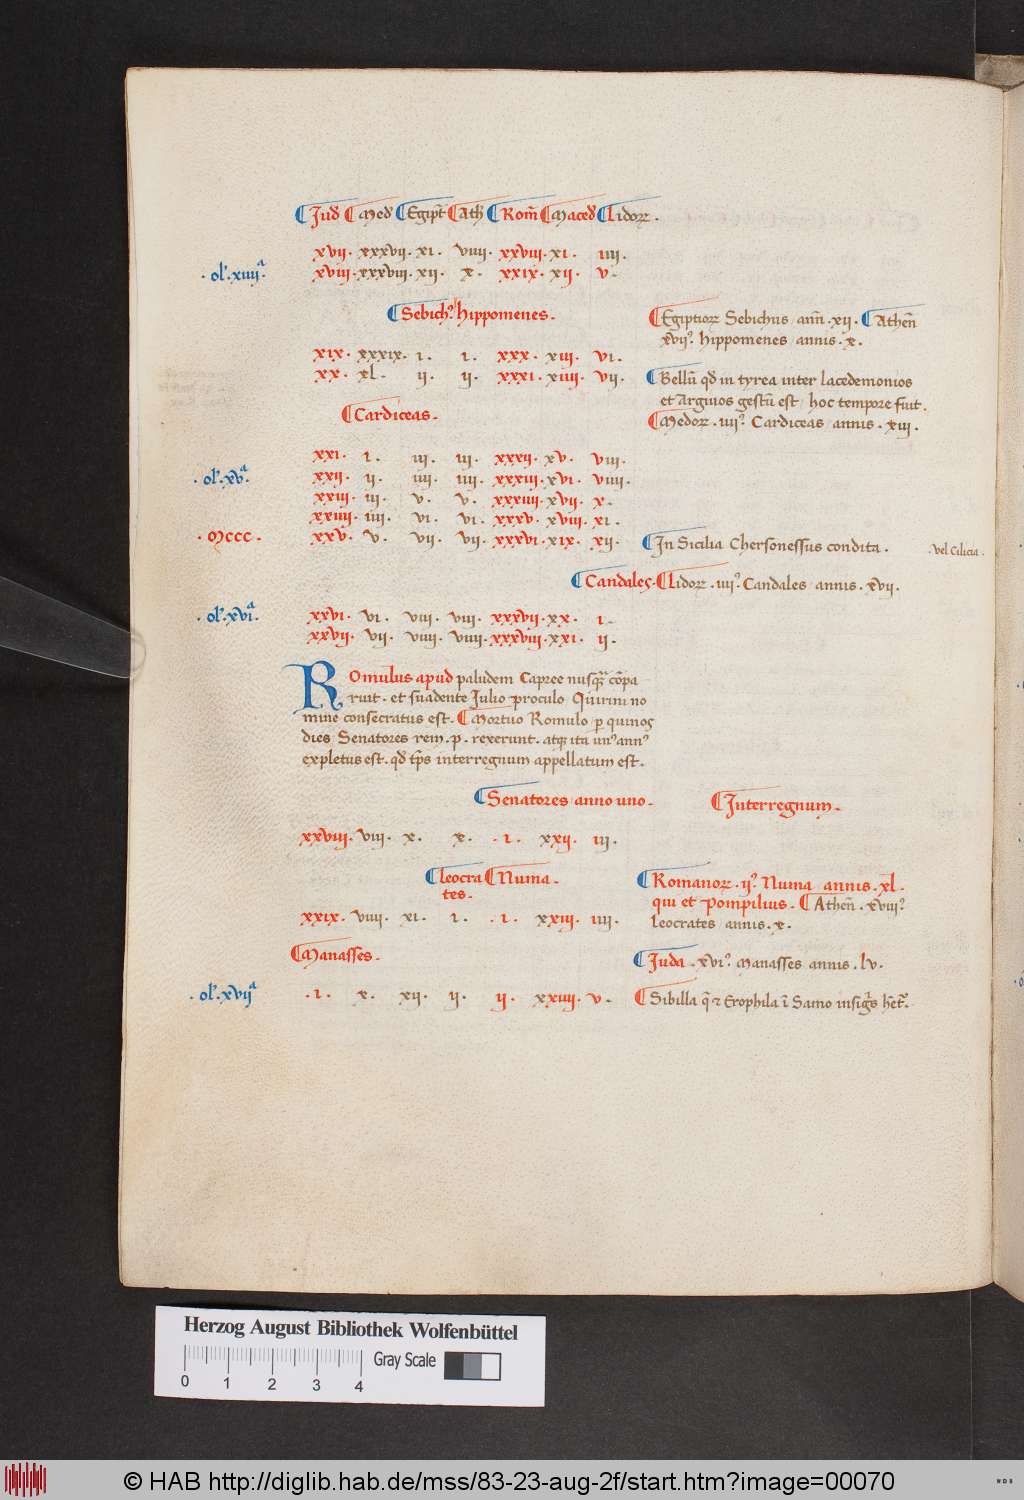 Jud Med Egipt Ath Rom Maced Lidor.
xvii. xxxvii. xi. viiii. xxviii. xi. iiii.
.ol. xiiii a xviii. xxxviii. xii. x. xxix. xii. v.
Sebich9. hippomenes. Egiptior Sebichus ann .xii. Athen
xvii9. hippomenes annis .x.
xix. xxxix. i. i. xxx. xiii. vi.
xx. xl. ii. ii. xxxi. xiiii. vii. Bellu qd in tyrea inter lacedemonios
et Argiuos gestu est hoc tempore fuit.
Cardiceas. Medor .iiii9. Cardiceas annis .xiii.
xxi. i. iii. iii. xxxii. xv. viii.
.ol. xv a xxii. ii. iiii. iiii. xxxiii. xvi. viiii.
xxiii. iii. v. v. xxxiiii. xvii. x.
xxiiii. iiii. vi. vi. xxxv. xviii. xi.
.mccc. xxv. v. vii. vii. xxxvi. xix. xii. In Sicilia Chersonessus condita. .vel Cilicia.
Candales. Lidor .iiii9. Candales annis .xvii.
.ol. xvi a xxvi. vi. viii. viii. xxxvii. xx. i.
xxvii. vii. viiii. viiii. xxxviii. xxi. ii.
ROmulus apud paludem Capree nusqr copa
ruit. et suadente Julio proculo Quirini no
mine consecratus est. Mortuo Romulo p quinos
dies Senatores rem .p. rexerunt. atq ita un9 ann9
expletus est. qd tps interregnum appellatum est.
Senatores anno uno. Interregnum.
xxviii. viii. x. x. .i. xxii. iii.
leocra Numa. Romanor .ii9. Numa annis .xl.
tes. qui et Pompilius. Athen .xviii9
xxix. viiii. xi. i. .i. xxiii. iiii. leocrates annis .x.
Manasses. Juda .xvi9. Manasses annis .lv.
.ol. xvii a .i. x. xii. ii. ii. xxiiii. v. Sibilla q & Erophila i Samo insigs het.
Herzog August Bibliothek Wolfenbüttel
Gray Scale
0 1 2 3 4
© HAB http://diglib.hab.de/mss/83-23-aug-2f/start.htm?image=00070